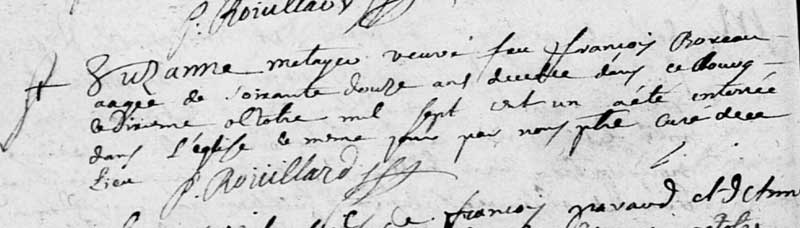 P. Roüillard
Suzanne metayer veuve feu françois Boreau
aagee de soixante douze ans decedee dans ce bourg
le dixieme octobre mil sept cent un a été enterrée
dans l'église le meme jour par nous ptre curé de ce
Lieu P. Roüillard
de françois
octobre